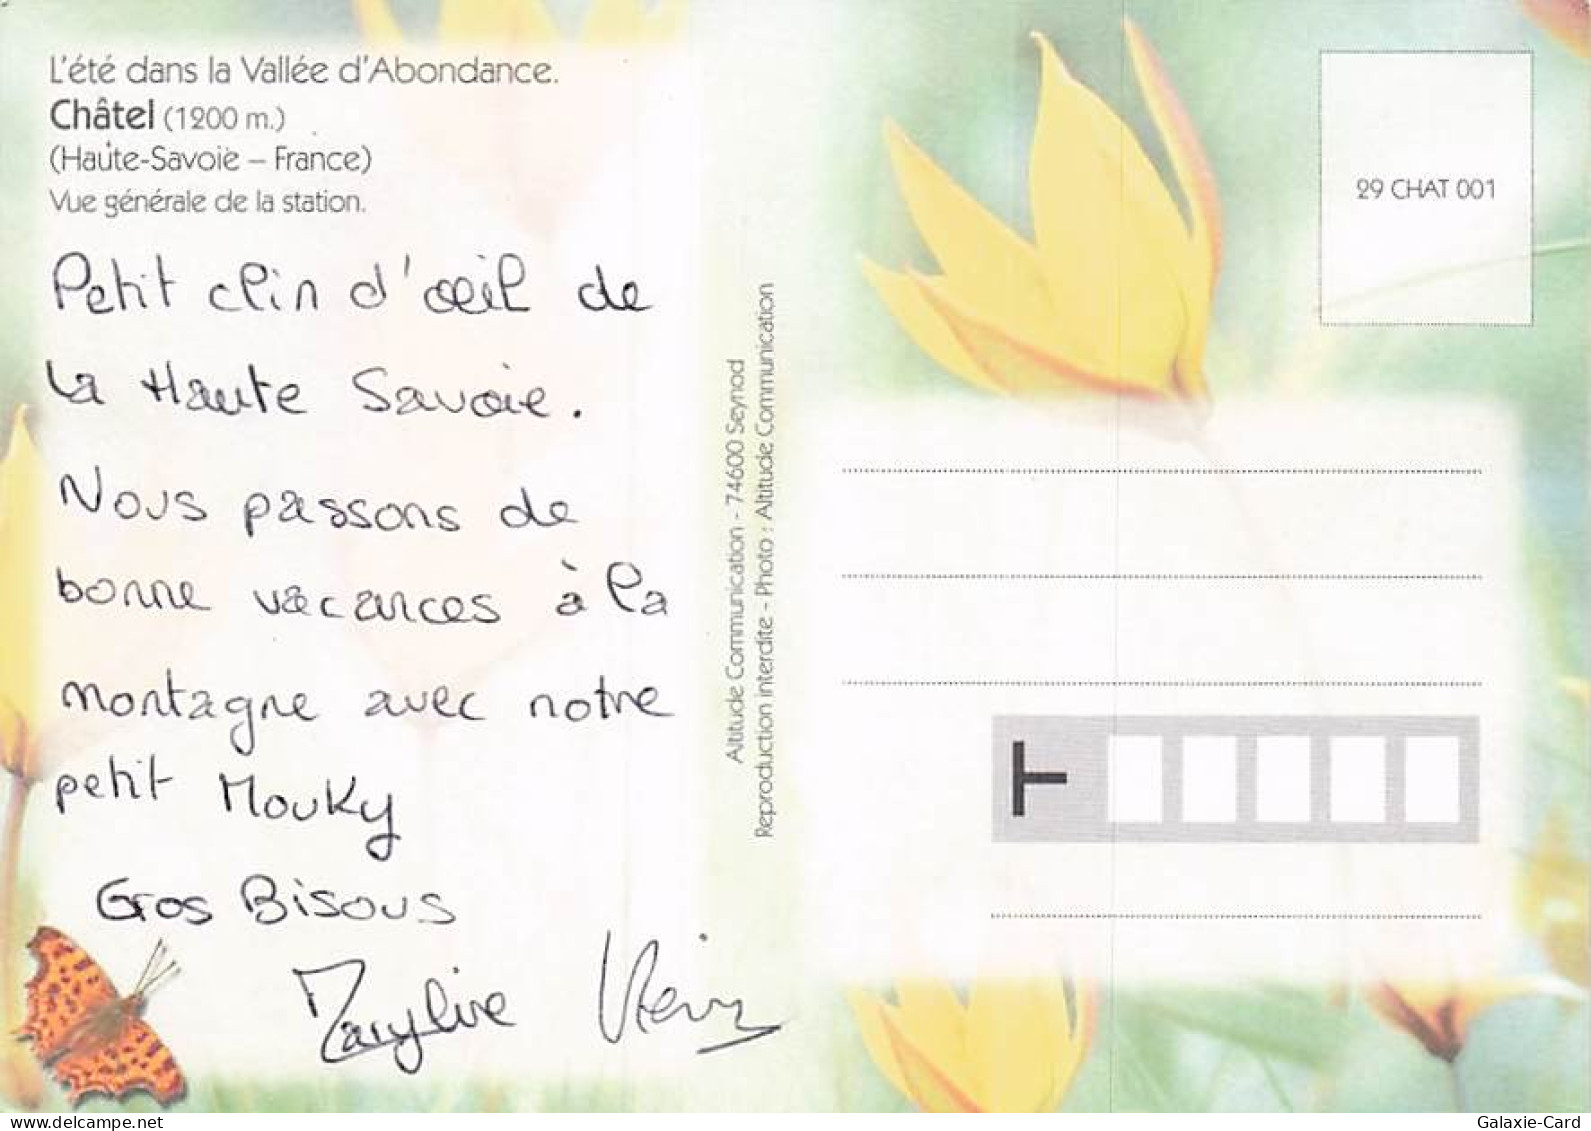 L'été dans la Vallée d'Abondance.
Châtel (1200 m.)
(Haute-Savoie – France)
Vue générale de la station.
Petit clin d'œil de
la Haute Savoie.
Nous passons de
bonne vacances à la
montagne avec notre
petit Mouky
Gros Bisous
Maryline
Altitude Communication - 74600 Seynod
Reproduction interdite - Photo : Altitude Communication
29 CHAT 001
delcampe.net
Galaxie-Card